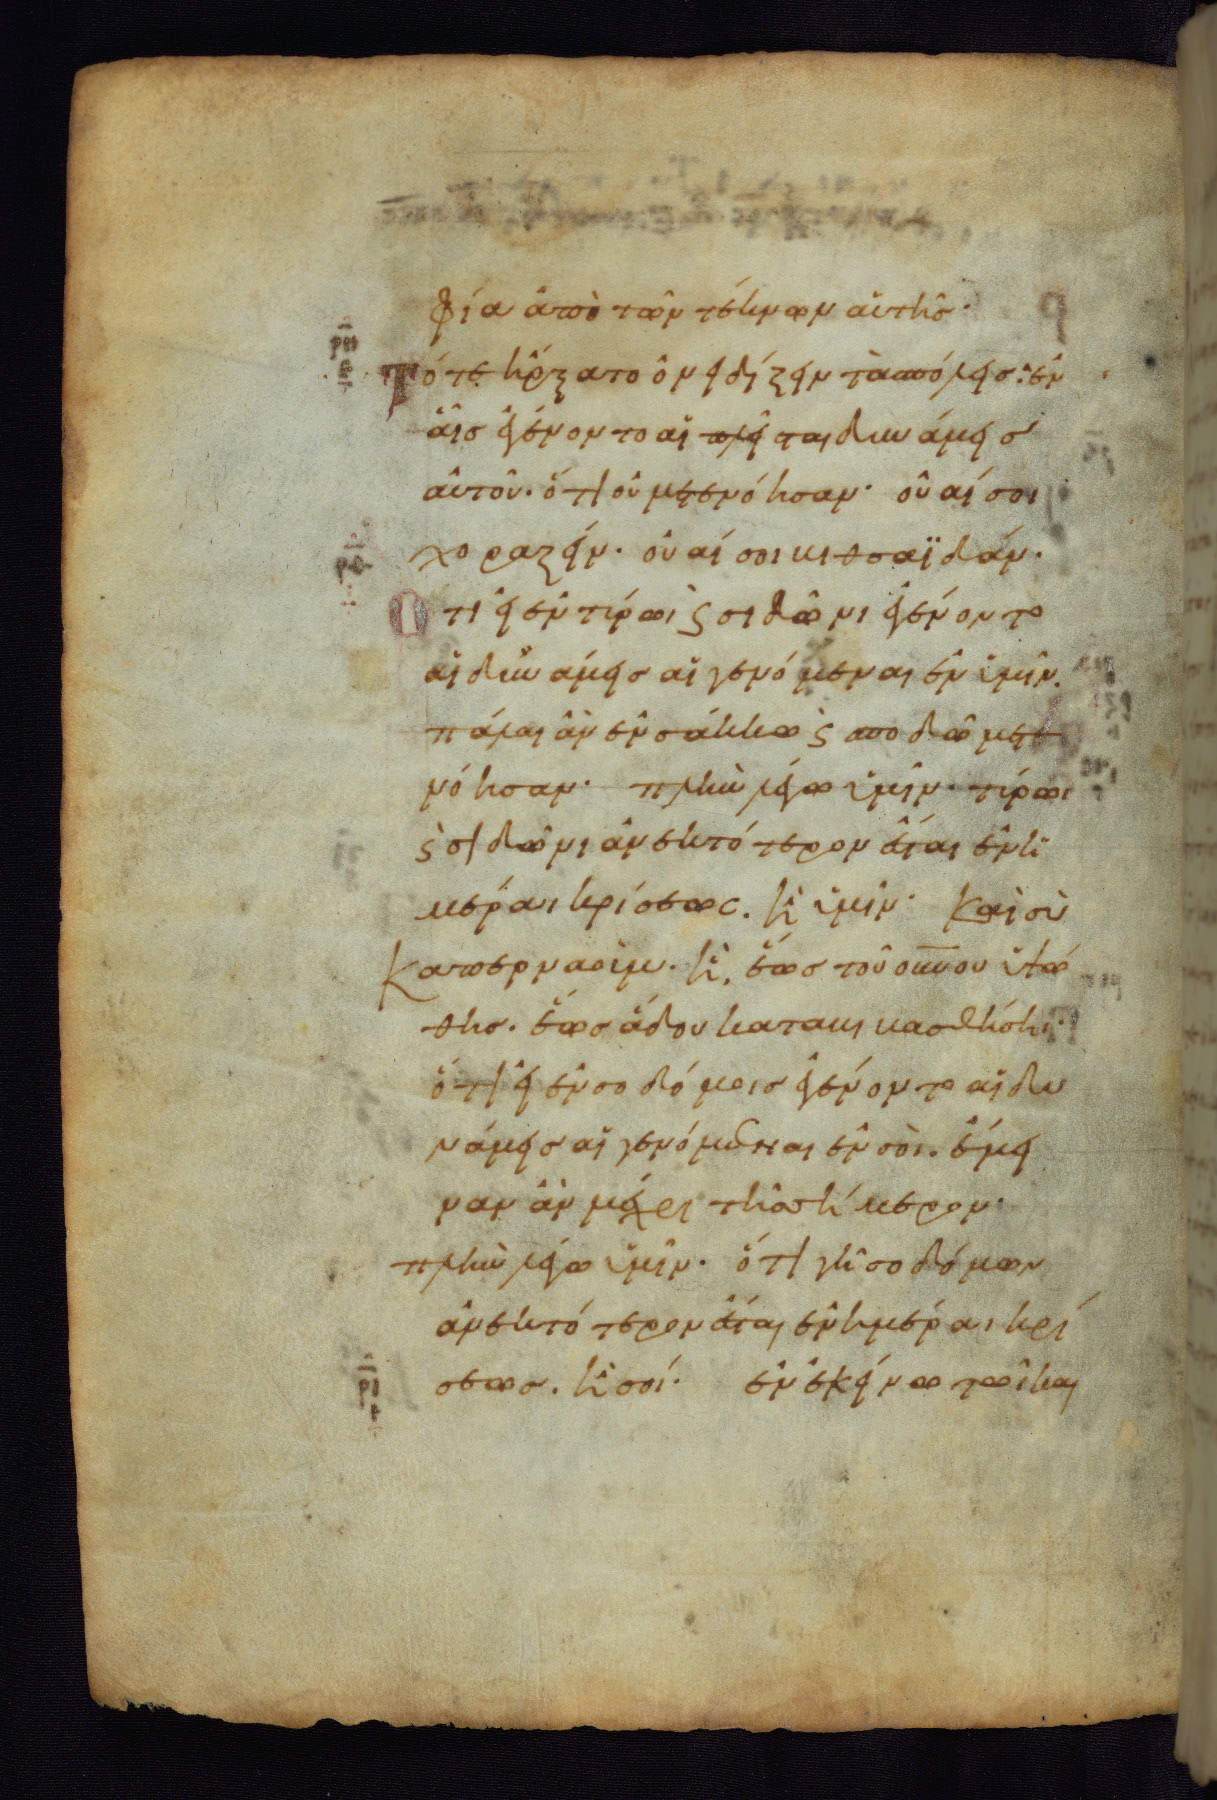 φία ἀπὸ τῶν τέκνων αὐτῆσ·
Τότε ἤρξατο ὀνειδίζειν τὰσ πόλεισ· ἐν
αἷσ ἐγένοντο αἱ πλεῖσται δυνάμεισ
αὐτοῦ· ὅτι οὐ μετενόησαν· οὐαί σοι
χοραζείν· οὐαί σοι βιθσαϊδάν·
Ὅτι εἰ ἐν τύρωι ϛ σιδῶνι ἐγένοντο
αἱ δυνάμεισ αἱ γενόμεναι ἐν ὑμῖν·
πάλαι ἂν ἐν σάκκω ϛ σποδῶ μετε
νόησαν· πλὴν λέγω ὑμῖν· τύρωι
ϛ σιδῶνι ἀνεκτότερον ἔσται ἐν ἡ
μέραι κρίσεως. ἢ ὑμῖν· Καὶ σὺ
Καπερναούμ· ἡ, ἕωσ τοῦ οὐνου ὑψω
θησ. ἕωσ ἅδου καταβιβασθήση·
ὅτι εἰ ἐν σοδόμοισ ἐγένοντο αἱ δυ
νάμεισ αἱ γενόμεναι ἐν σοὶ. ἔμει
ναν ἂν μέχρι τῆσ σήμερον·
πλὴν λέγω ὑμῖν· ὅτι γῆ σοδόμων
ἀνεκτότερον ἔσται ἐν ἡμέραι κρί
σεωσ. ἢ σοί· ἐν ἐκείνω τῶ και